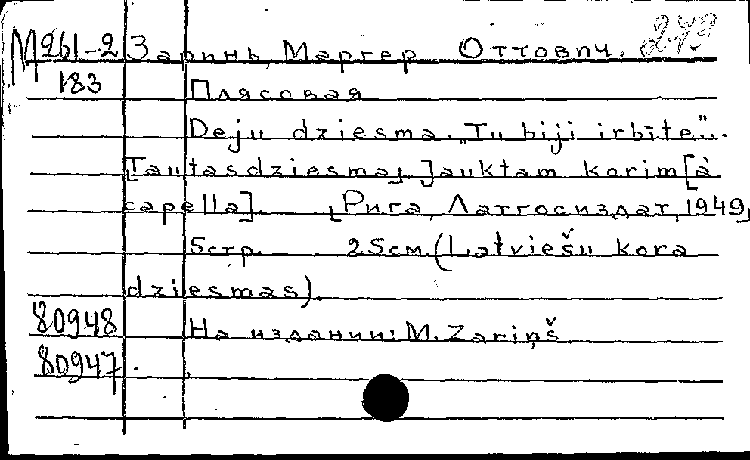 М261-2 Заринь, Маргер Оттович.
183 Плясовая
Deju dziesma. „Tu biji irbīte“.
[Tautasdziesma]. Jauktam korim [à
capella]. [Рига, Латгосиздат, 1949]
5стр. 25см. (Latviešu kora
dziesmas).
80948 На издании: M. Zariņš
80947